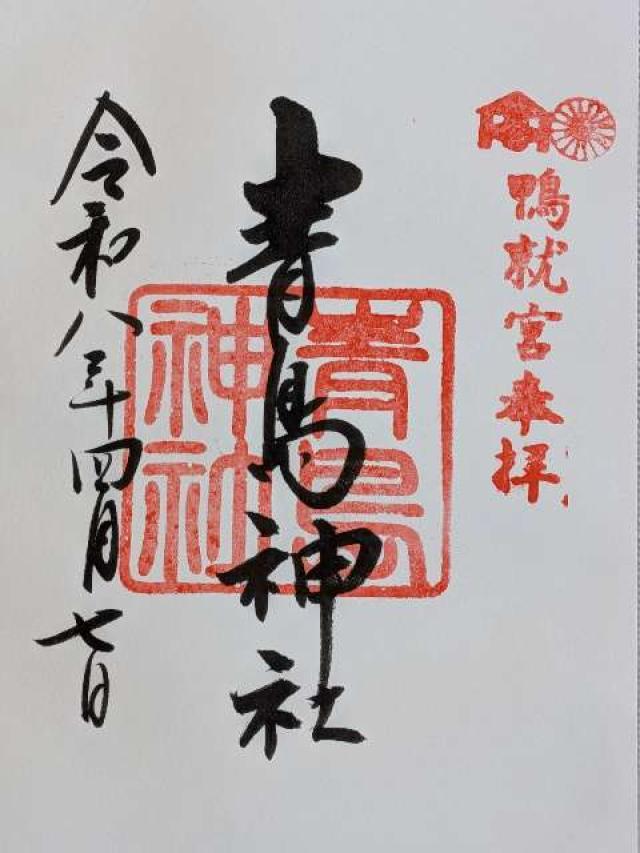 鴨就宮来拝
青島神社
青島
神社
令和八年四月七日